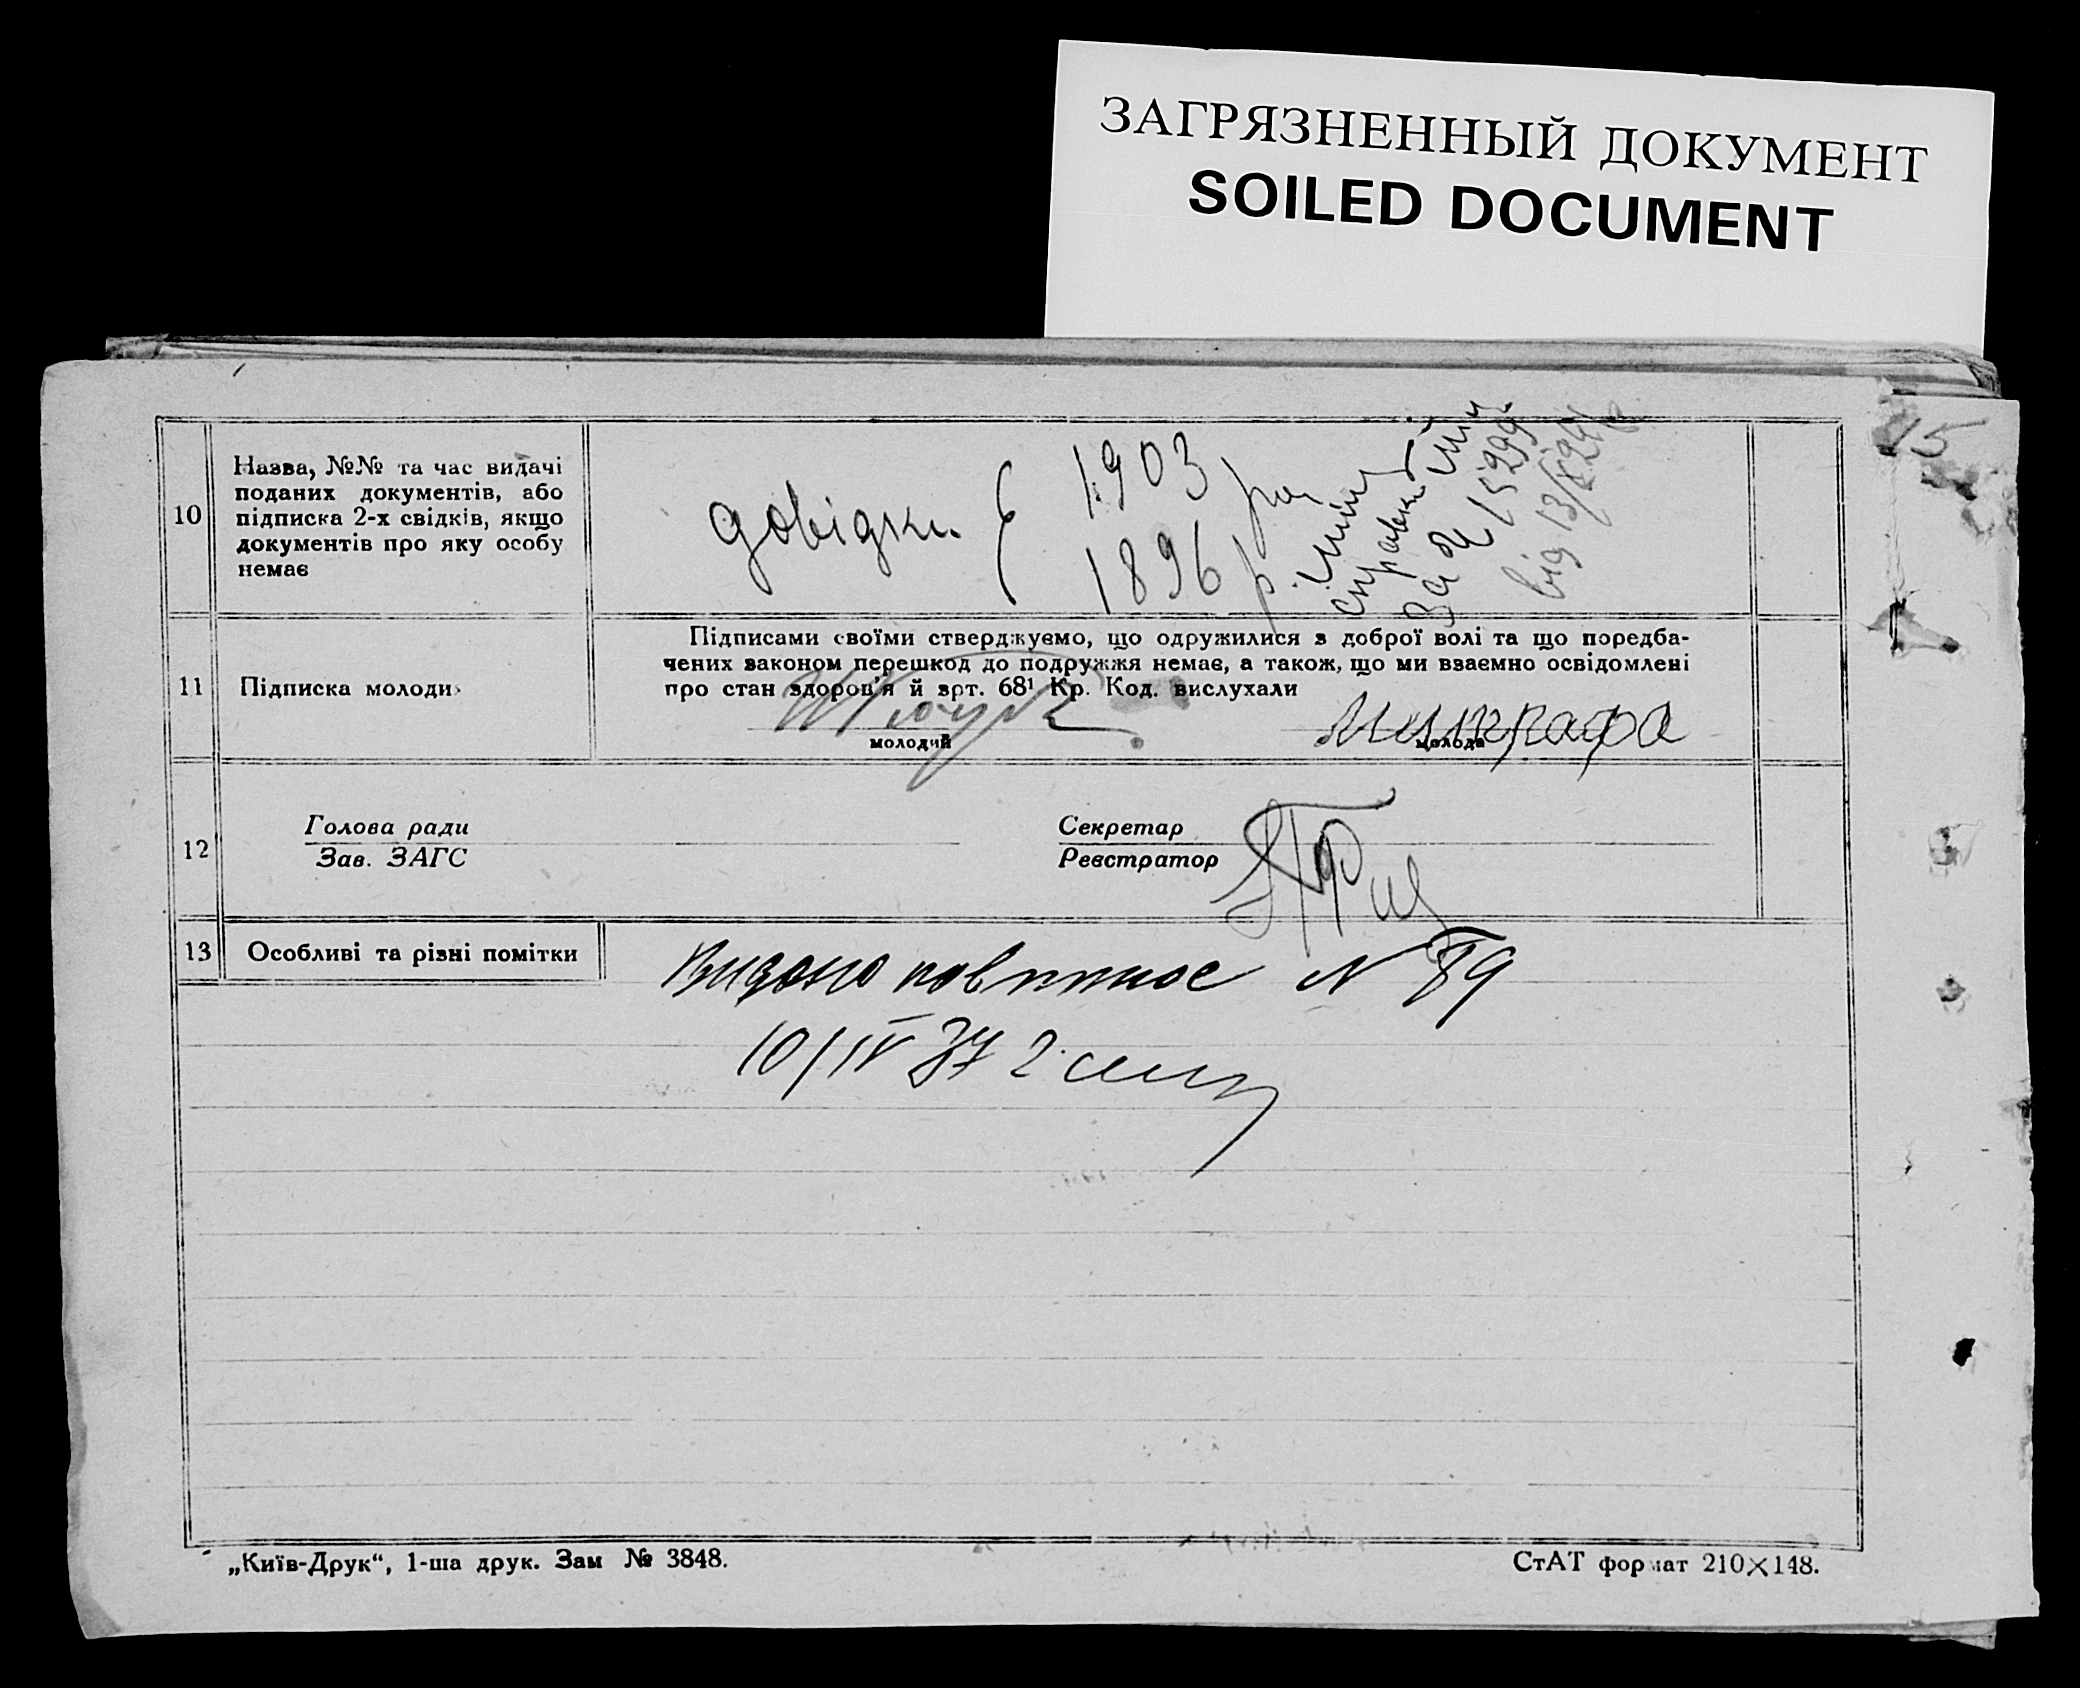 ЗАГРЯЗНЕННЫЙ ДОКУМЕНТ
SOILED DOCUMENT
15
10
Назва, №№ та час видачі
поданих документів, або
підписка 2-х свідків, якщо
документів про яку особу
немає
довідки { 1903 р
1896 р
за № 15299
від 13/
11
Підписка молодих
Підписами своїми стверджуємо, що одружилися з доброї волі та що поредба-
чених законом перешкод до подружжя немає, а також, що ми взаємно освідомлені
про стан здоров'я й арт. 68¹ Кр. Код. вислухали
молодий
молода
12
Голова ради
Зав. ЗАГС
Секретар
Реєстратор
13
Особливі та різні помітки
Видано повторное N 89
10/IV 37 г.
„Київ-Друк“, 1-ша друк. Зам № 3848.
СтАТ формат 210×148.